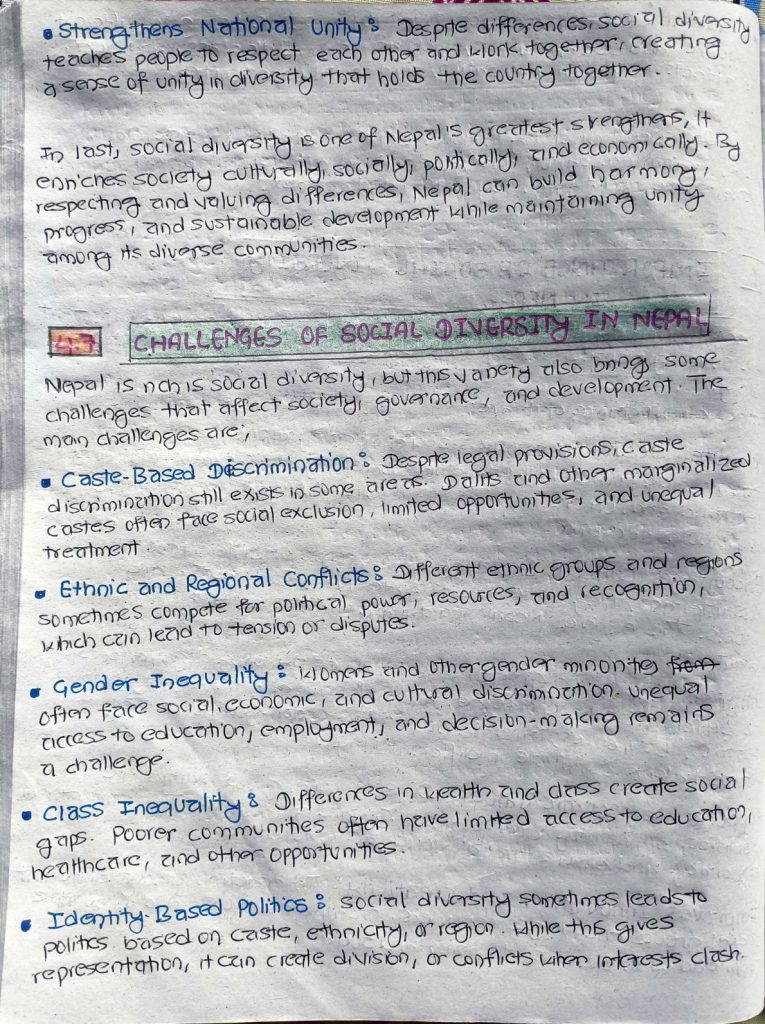 • Strengthens National Unity: Despite differences, social diversity
teaches people to respect each other and work together, creating
a sense of unity in diversity that holds the country together.
In last, social diversity is one of Nepal's greatest strengthens, It
enriches society culturally, socially, politically, and economically. By
respecting and valuing differences, Nepal can build harmony,
progress, and sustainable development while maintaining unity
among its diverse communities.
4.7 CHALLENGES OF SOCIAL DIVERSITY IN NEPAL
Nepal is rich is social diversity, but this variety also brings some
challenges that affect society, governance, and development. The
main challenges are;
• Caste-Based Discrimination: Despite legal provisions, caste
discrimination still exists in some areas. Dalits and other marginalized
castes often face social exclusion, limited opportunities, and unequal
treatment.
• Ethnic and Regional Conflicts: Different ethnic groups and regions
sometimes compete for political power, resources, and recognition,
which can lead to tension or disputes.
• Gender Inequality: Womens and other gender minorities
often face social, economic, and cultural discrimination. Unequal
access to education, employment, and decision-making remains
a challenge.
• Class Inequality: Differences in wealth and class create social
gaps. Poorer communities often have limited access to education,
healthcare, and other opportunities.
• Identity-Based Politics: Social diversity sometimes leads to
politics based on caste, ethnicity, or region. While this gives
representation, it can create division, or conflicts when interests clash.